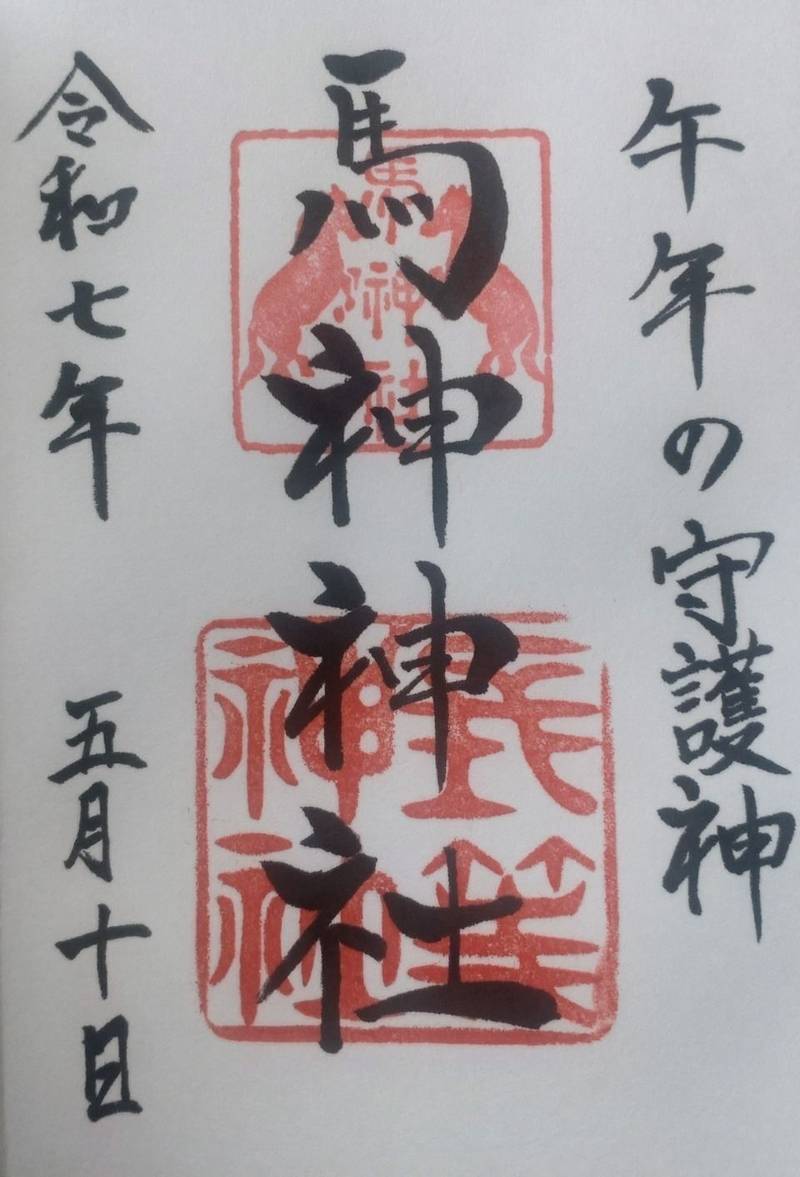 午年の守護神
馬神神社
馬神神社
長等神社
令和七年 五月十日